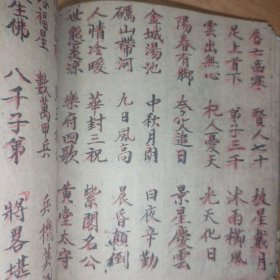 唇亡齒寒 賢人七十 披星戴月
足上首下 弟子三千 沐雨櫛風
雲出無心 杞人憂天 老天化日
陽春有脚 夸父追日 景星慶雲
金城湯池 中秋月朗 日夜辛勤
礪山帶河 九日風高 晨昏顛倒
人情冷暖 華封三祝 紫閣名公
世態炎涼 樂府四歌 黃堂太守
福星 數萬甲兵 兵機
生佛 八千子弟 將畧堪